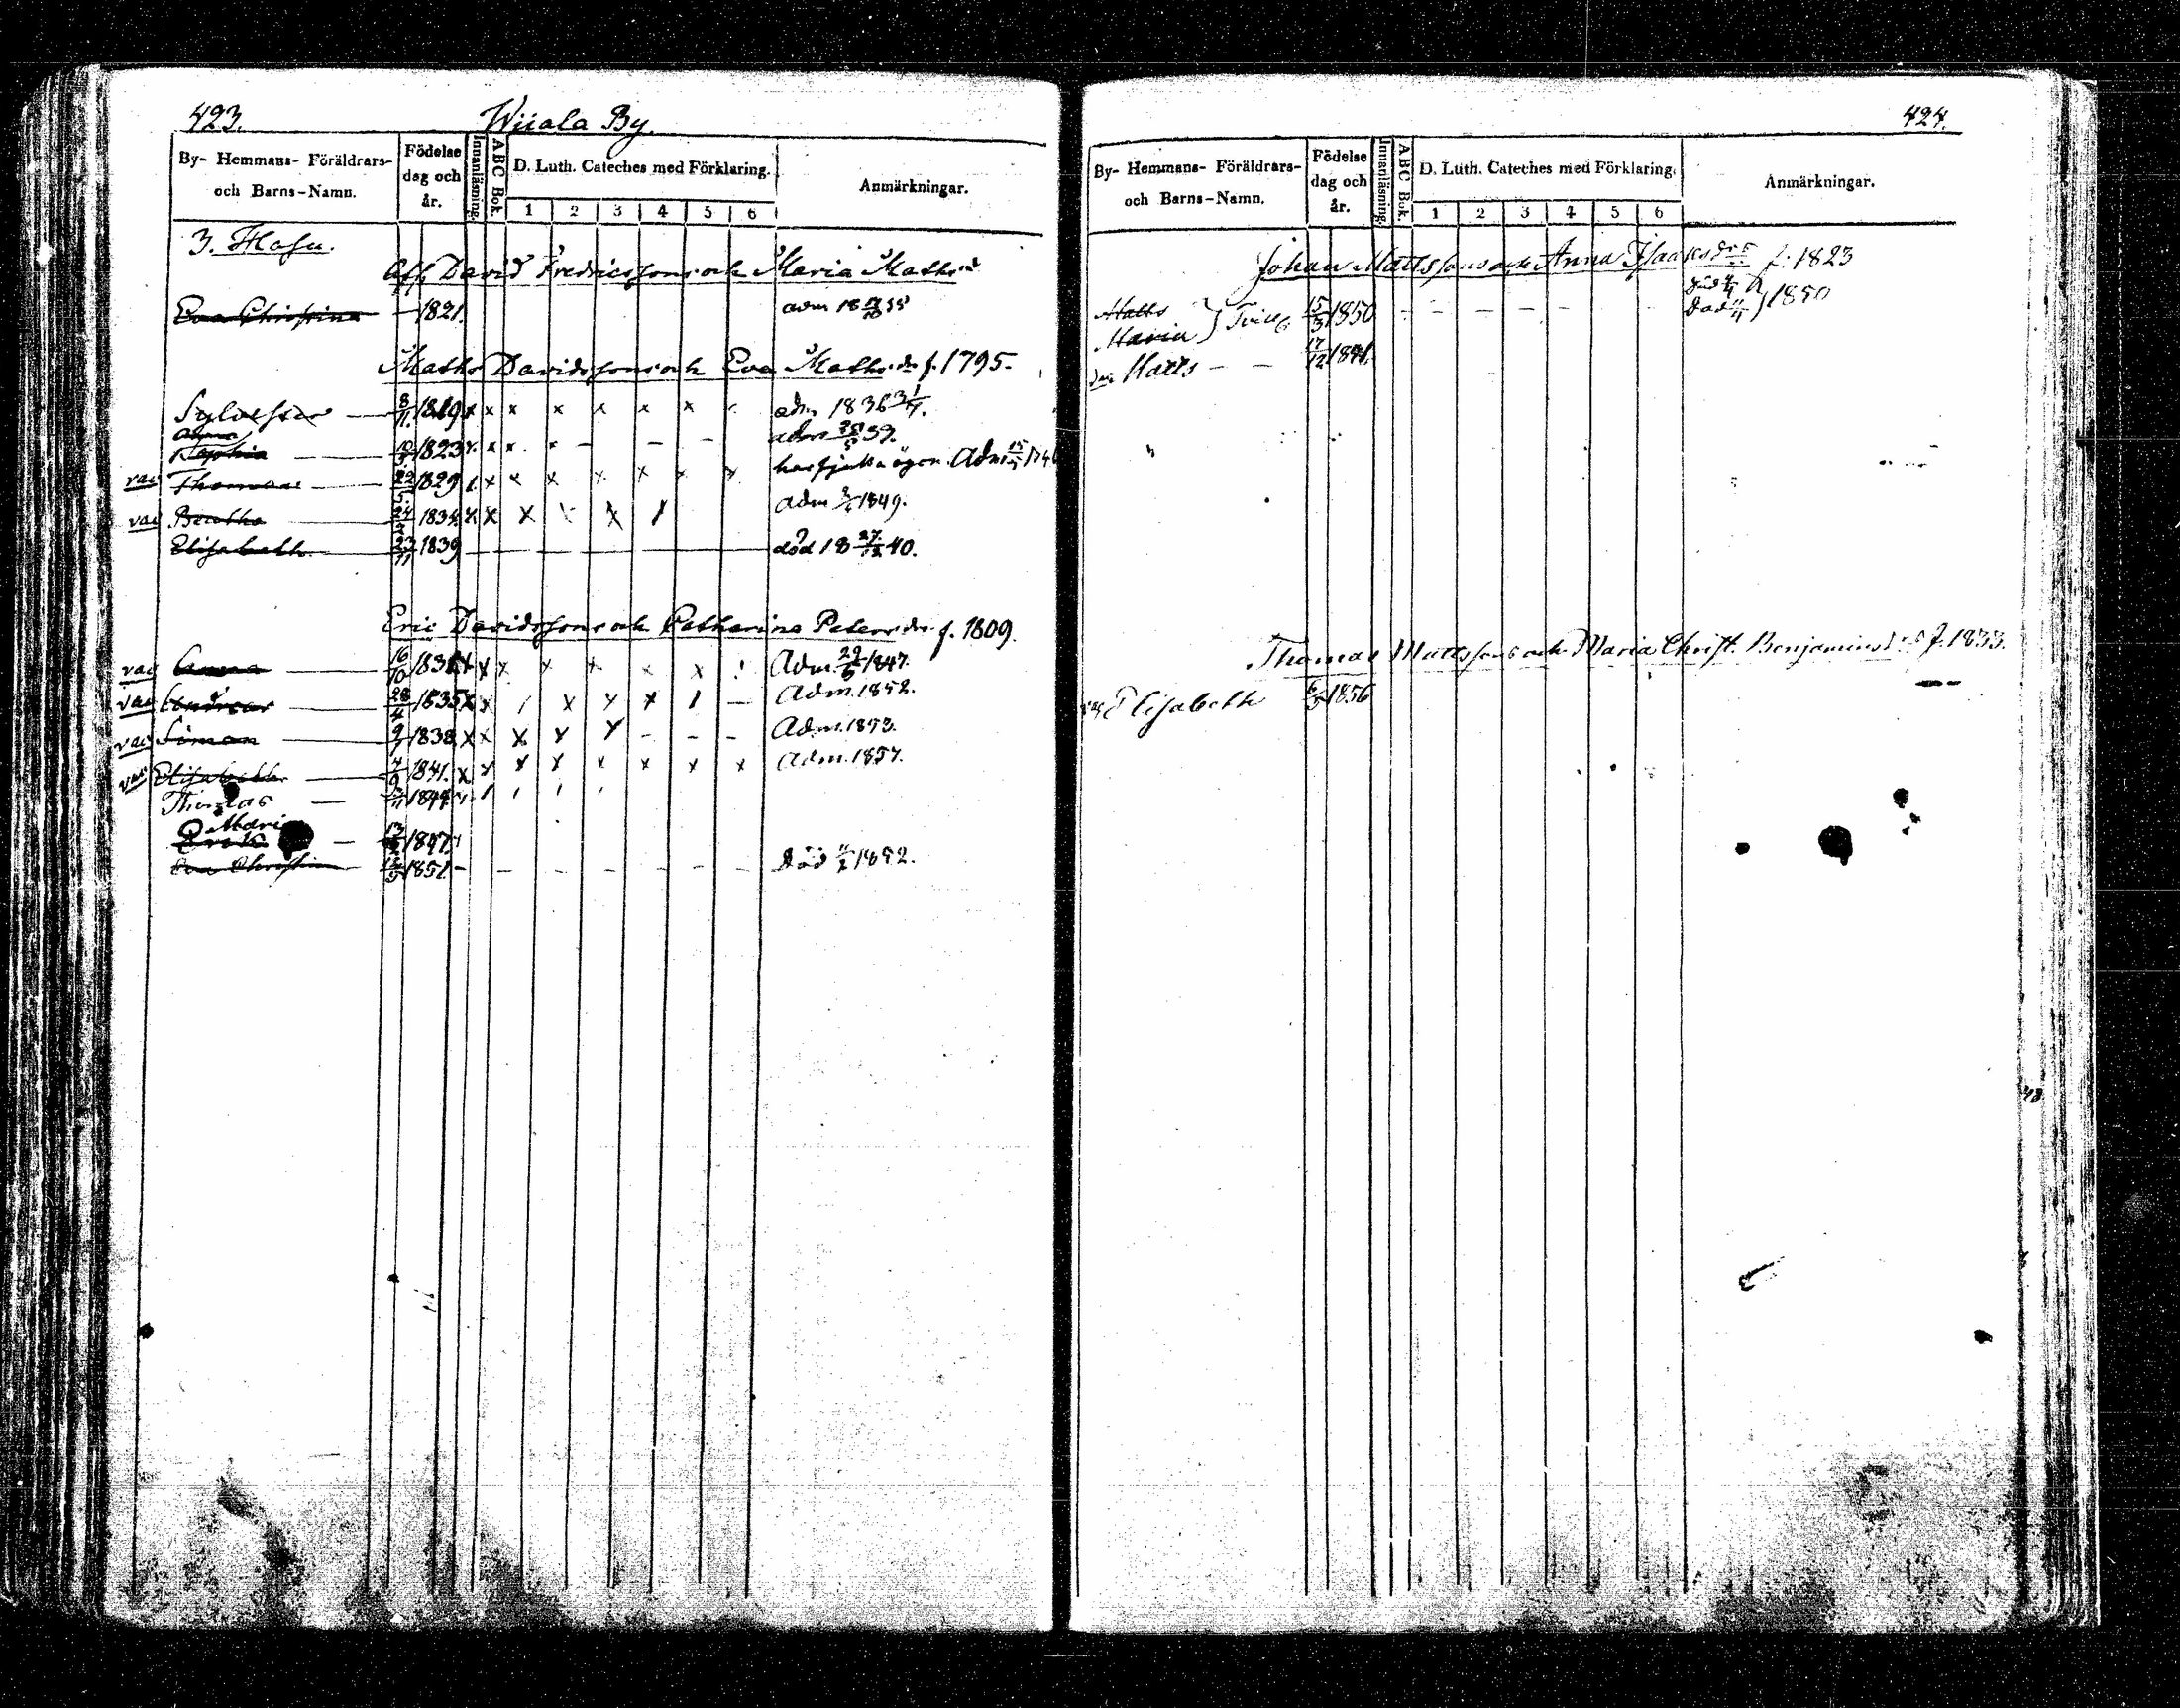 423.
Wiiala By.
By- Hemmans- Föräldrars- och Barns-Namn.
Födelse dag och år.
Innanläsning.
ABC Bok.
D. Luth. Cateches med Förklaring.
1 2 3 4 5 6
Anmärkningar.
3. Hosu.
Aff. David Fredricssons och Maria Mathsd
Eva Christina — 1821. adm 18 55
Maths Davidssons och Eva Mathsdr f. 1795.
Sylvester — 8/11 1819 x x x x x x x adm 1836
Anna adm 39.
Sophia — 1823 x x x x — — — har sjuka ögon. Adm
vac Thomas — 22/5 1829 x x x x x x x
vac Beatha — 24 1834 x x x x x adm 1849.
Elisabeth — 23/11 1839 — död 18 27/12 40.
Eric Davidssons och Catharina Petersdr f. 1809.
vac Anna — 16/10 183 x x x x x x x Adm. 29 1847.
vac Andreas — 28/4 1835 x x / x x x / — Adm. 1852.
vac Simon — 1838 x x x x x — — — Adm. 1853.
vac Elisabeth — 4/9 1841. x x x x x x x x Adm. 1857.
Thomas — 1844
Maria
Erik — 1847
Eva Christina 1851 — — — — — — — Död 1852.
424.
By- Hemmans- Föräldrars- och Barns-Namn.
Födelse dag och år.
Innanläsning.
ABC Bok.
D. Luth. Cateches med Förklaring.
1 2 3 4 5 6
Anmärkningar.
Johan Mattssons och Anna Isaksdr f. 1823
Matts
Maria } Tvill. 15/3 1850 — — — — — — död } 1850
Matts — — 17/12 18
Thomas Mattssons och Maria Christ. Benjaminsd f. 1833.
vac Elisabeth 6/5 1856